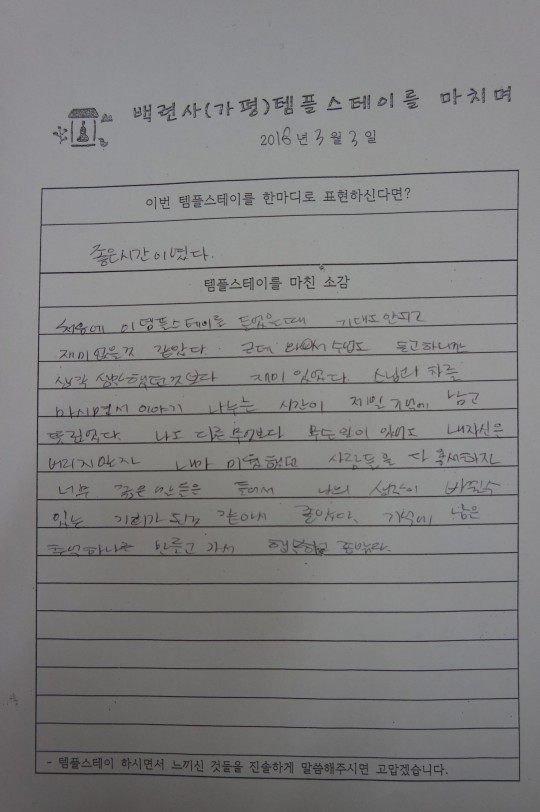 백련사(가평)템플스테이를 마치며
2018년 3월 3일
이번 템플스테이를 한마디로 표현하신다면?
좋은시간이였다.
템플스테이를 마친 소감
처음에 이 템플스테이를 들었을때 기대도안되고
재미없을것 같았다 근데 와서 수업도 듣고하니까
생각 했던것보다 재미있었다 스님과 차를
마시면서 이야기 나누는 시간이 제일 기억에 남고
뜻깊었다. 나도 다른 무엇보다 무슨일이 있어도 내자신은
버리지않자 내가 미워했던 사람들을 다 용서하자
너무 좋은 말들은 들어서 나의 생각이 바뀔수
있는 기회가 된것 같아서 좋았다. 기억에 남은
추억하나를 만들고 가서 행복하고 좋았다.
- 템플스테이 하시면서 느끼신 것들을 진솔하게 말씀해주시면 고맙겠습니다.